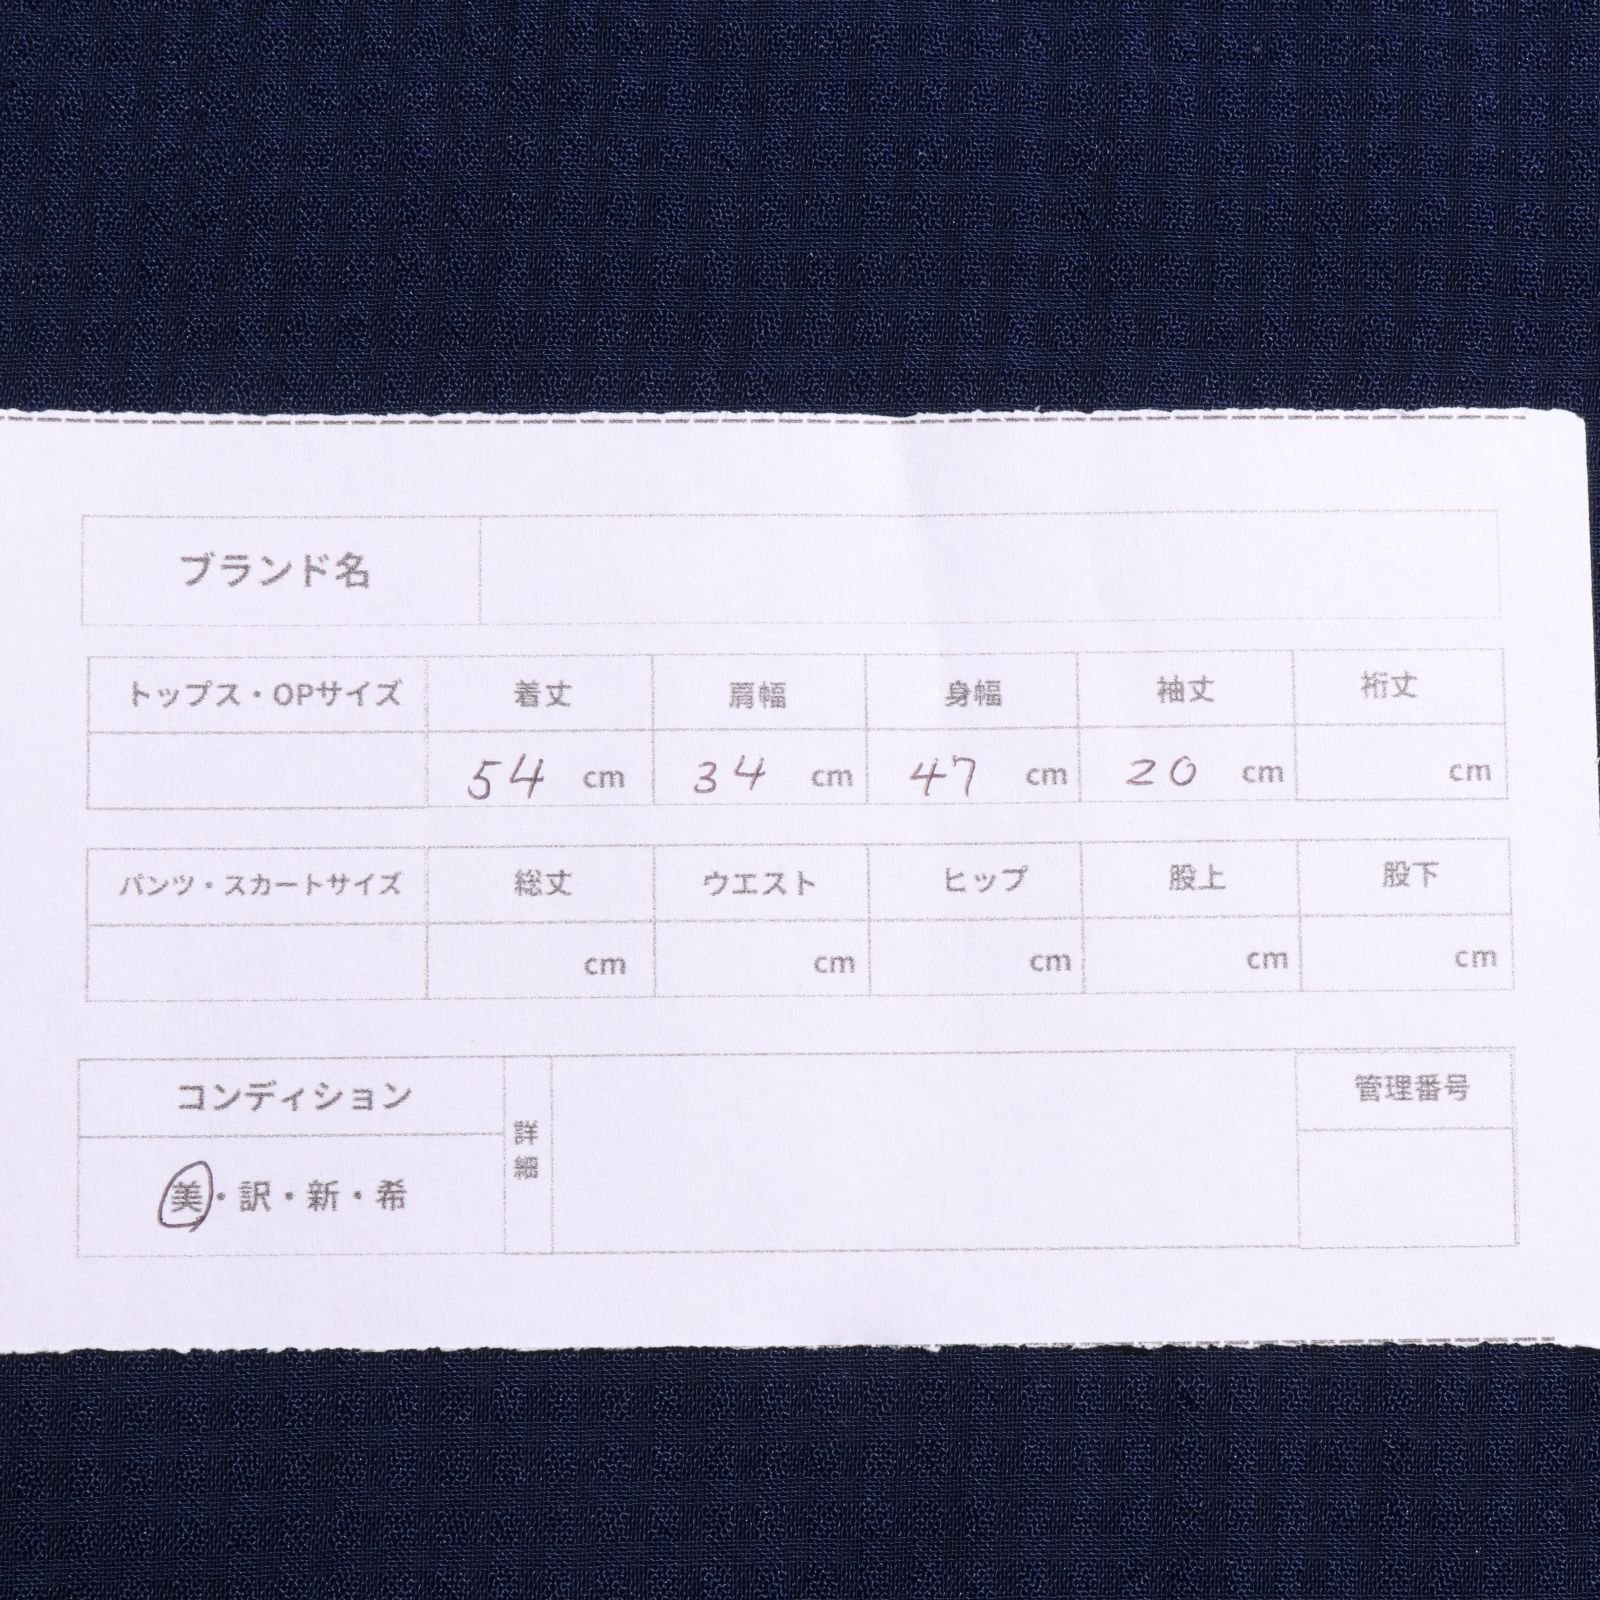 ブランド名
トップス・OPサイズ 着丈 肩幅 身幅 袖丈 裄丈
54 cm 34 cm 47 cm 20 cm cm
パンツ・スカートサイズ 総丈 ウエスト ヒップ 股上 股下
cm cm cm cm cm
コンディション 詳細 管理番号
美・訳・新・希